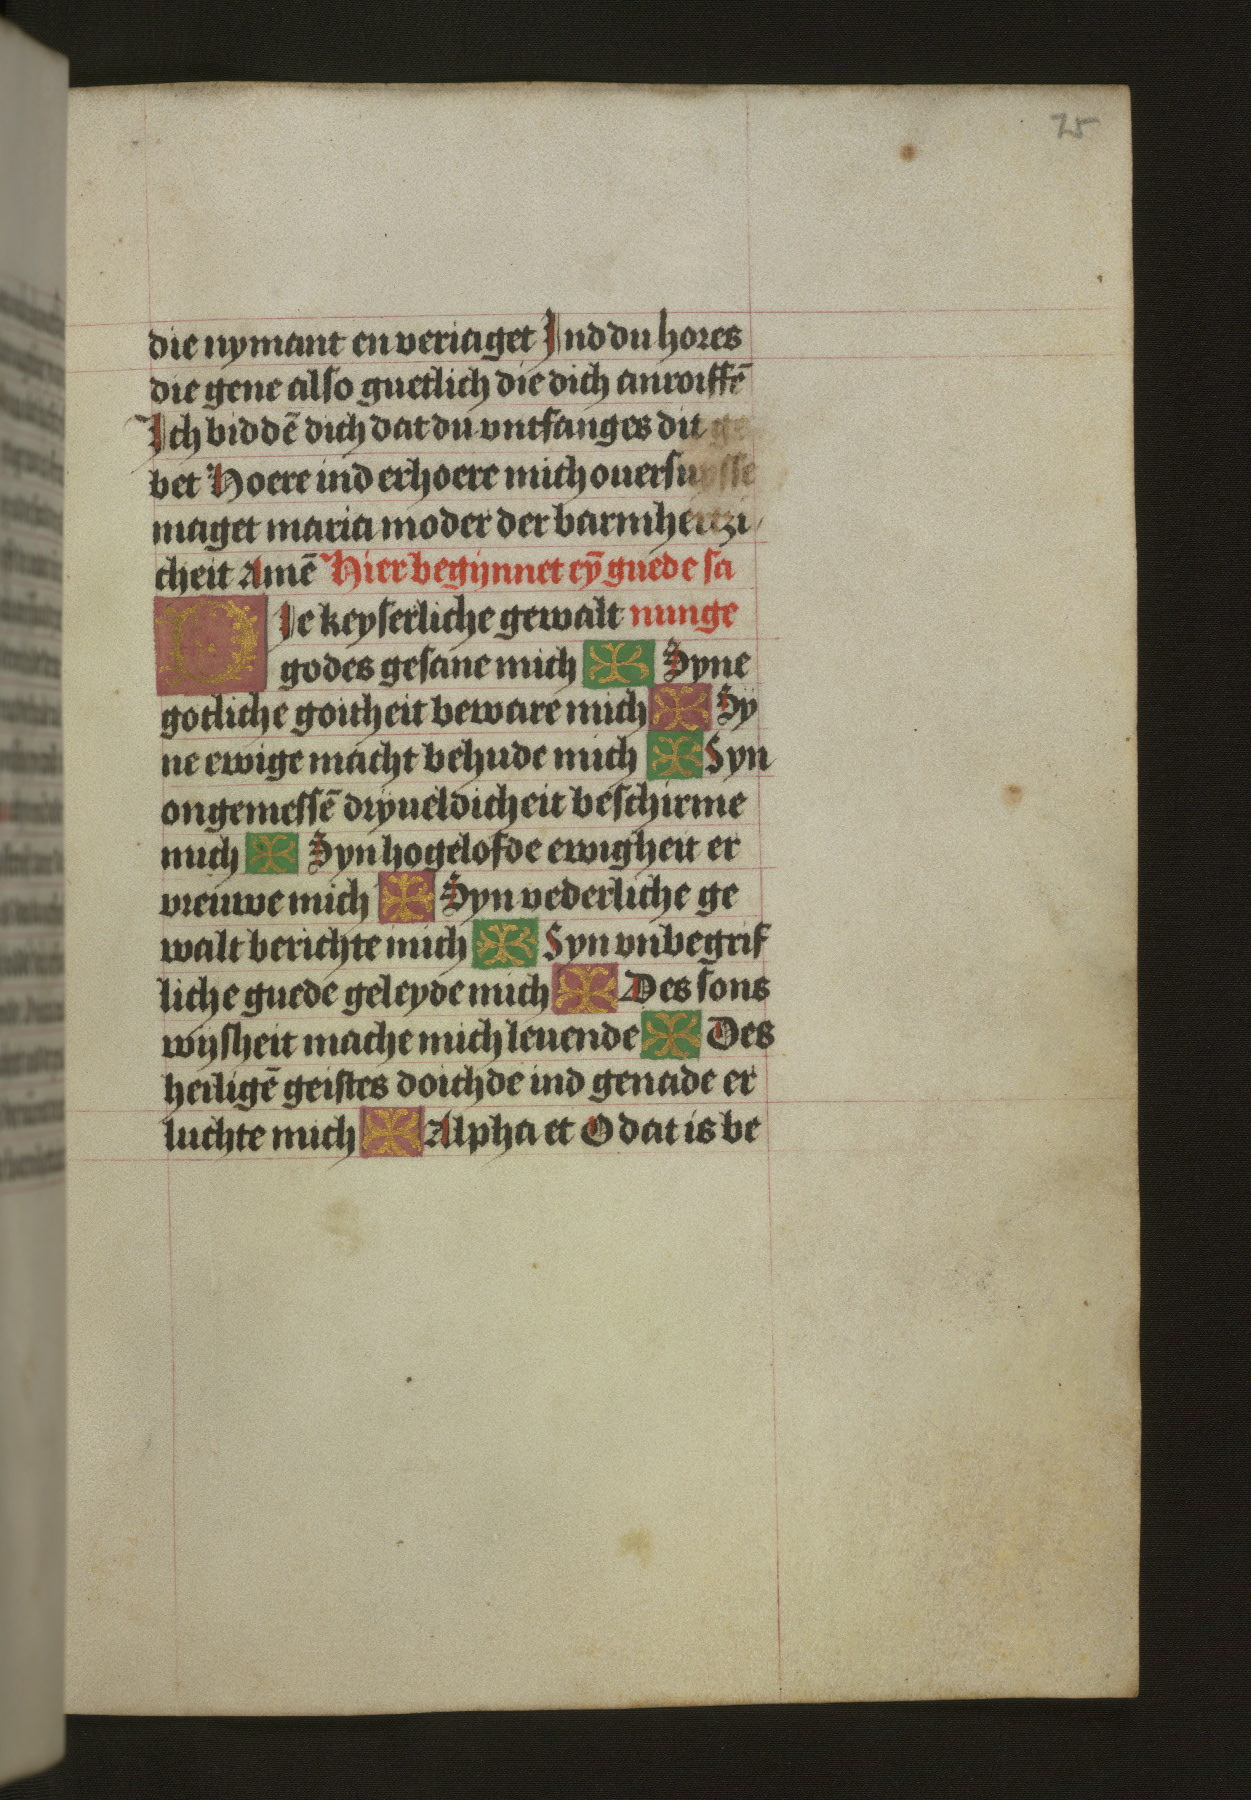 75
die nymant en veriaget Ind du hores
die gene also guetlich die dich anroiffē
Ich biddē dich dat du untfanges dit ge
bet Hoere ind erhoere mich ouersuysse
maget maria moder der barmhertzi
cheit Amē Hier begijnnet eȳ guede sa
Die keyserliche gewalt nunge
godes gesane mich Syne
gotliche goitheit beware mich Sy
ne ewige macht behude mich Syn
ongemessē dryueldicheit beschirme
mich Syn hogelofde ewigheit er
vreuwe mich Syn vederliche ge
walt berichte mich Syn vnbegrif
liche guede geleyde mich Des sons
wijsheit mache mich leuende Des
heiligē geistes doichde ind genade er
luchte mich Alpha et O dat is be